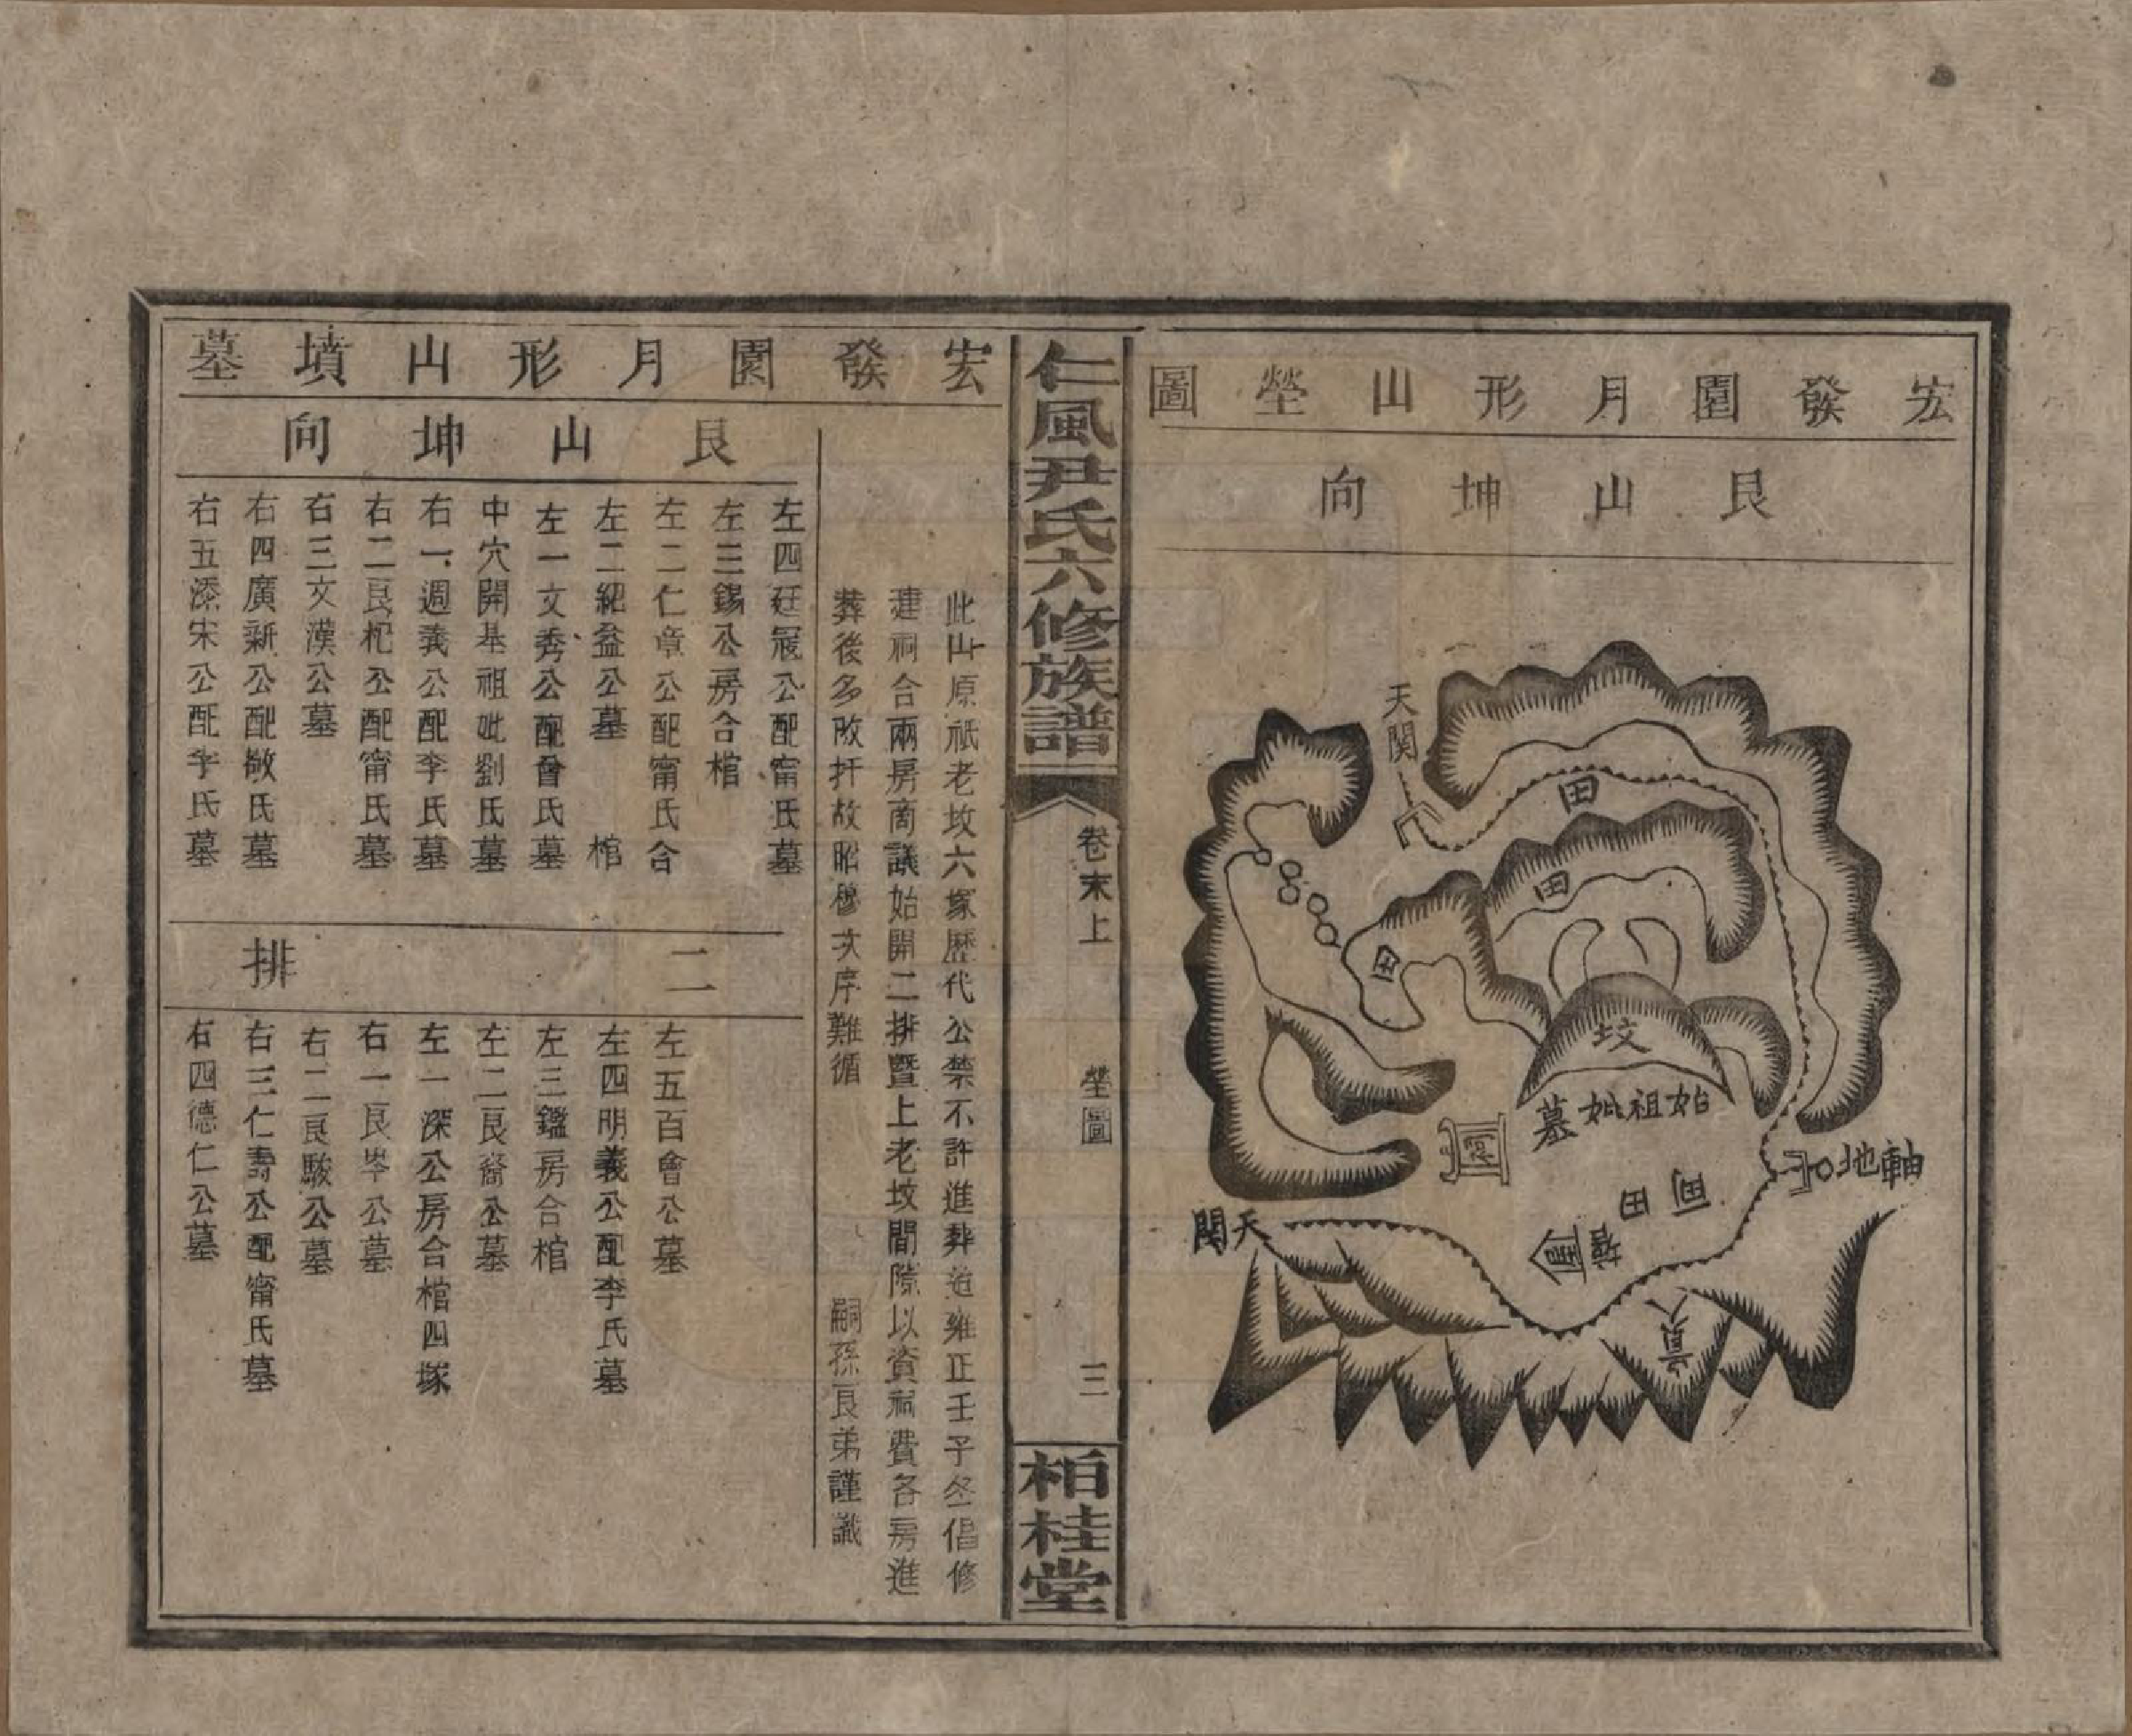 宏發園月形山塋圖
艮山坤向
天關
田
田
田
坟
始祖妣墓
地軸
天關
貴人
仁風尹氏六修族譜
卷末上
塋圖
三
柏桂堂
宏發園月形山墳墓
此山原祇老坟六塚歷代公禁不許進葬迨雍正壬子冬倡修
建祠合兩房商議始開二排暨上老坟間隙以資祠費各房進
葬後多敗扦故昭穆次序難循
嗣孫良弟謹識
艮山坤向
左四廷冠公配甯氏墓
左三錫公房合棺
左二仁章公配甯氏合
左二紹益公墓 棺
左一文秀公配曾氏墓
中穴開基祖妣劉氏墓
右一週義公配李氏墓
右二良杞公配甯氏墓
右三文漢公墓
右四廣新公配敬氏墓
右五添宋公配李氏墓
二排
左五百會公墓
左四明義公配李氏墓
左三鑑房合棺
左二良裔公墓
左一深公房合棺四塚
右一良岑公墓
右二良駿公墓
右三仁壽公配甯氏墓
右四德仁公墓